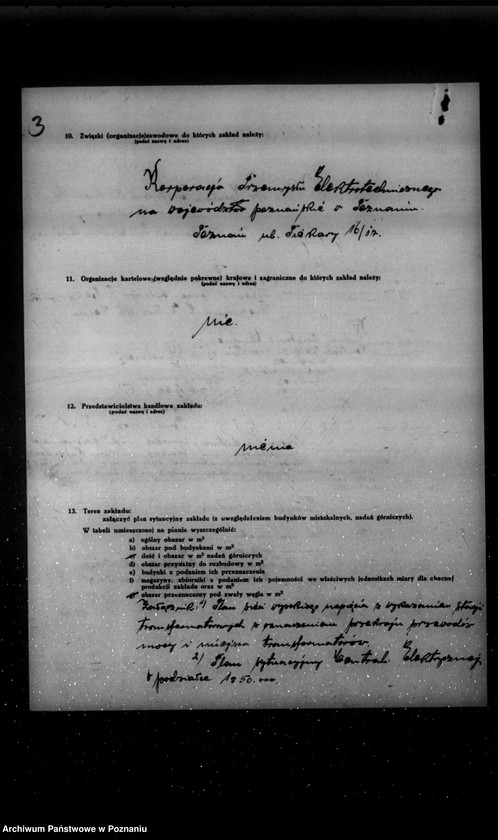 3
10. Związki (organizacje) zawodowe do których zakład należy:
(podać nazwę i adres)
Korporacja Przemysłu Elektrotechnicznego
na województwo poznańskie w Poznaniu.
Poznań ul. Piekary 16/17.
11. Organizacje kartelowe (względnie pokrewne) krajowe i zagraniczne do których zakład należy:
(podać nazwę i adres)
nie.
12. Przedstawicielstwa handlowe zakładu:
(podać nazwę i adres)
niema
13. Teren zakładu:
załączyć plan sytuacyjny zakładu (z uwzględnieniem budynków mieszkalnych, nadań górniczych).
W tabeli umieszczonej na planie wyszczególnić:
a) ogólny obszar w m²
b) obszar pod budynkami w m²
ilość i obszar w m² nadań górniczych
d) obszar przydatny do rozbudowy w m²
e) budynki z podaniem ich przeznaczenia
f) magazyny, zbiorniki z podaniem ich pojemności we właściwych jednostkach miary dla obecnej
produkcji zakładu oraz w m²
obszar przeznaczony pod zwały węgla w m²
Załączniki: 1) Plan sieci wysokiego napięcia z wykazaniem stacji
transformatorowych z oznaczeniem przekroju przewodów
mocy i miejsca transformatorów.
2) Plan sytuacyjny Centrali Elektrycznej,
w podziałce 1:250.
Archiwum Państwowe w Poznaniu